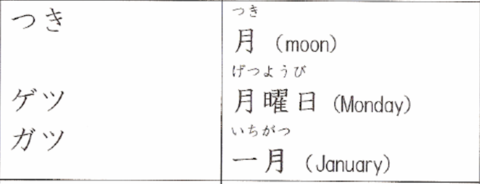 つき
つき
月 (moon)
げつようび
ゲツ
月曜日 (Monday)
いちがつ
ガツ
一月 (January)